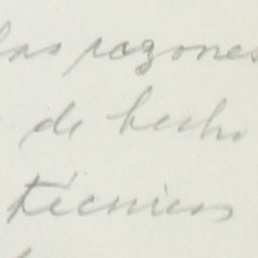 las razones
de hecho
técnicos